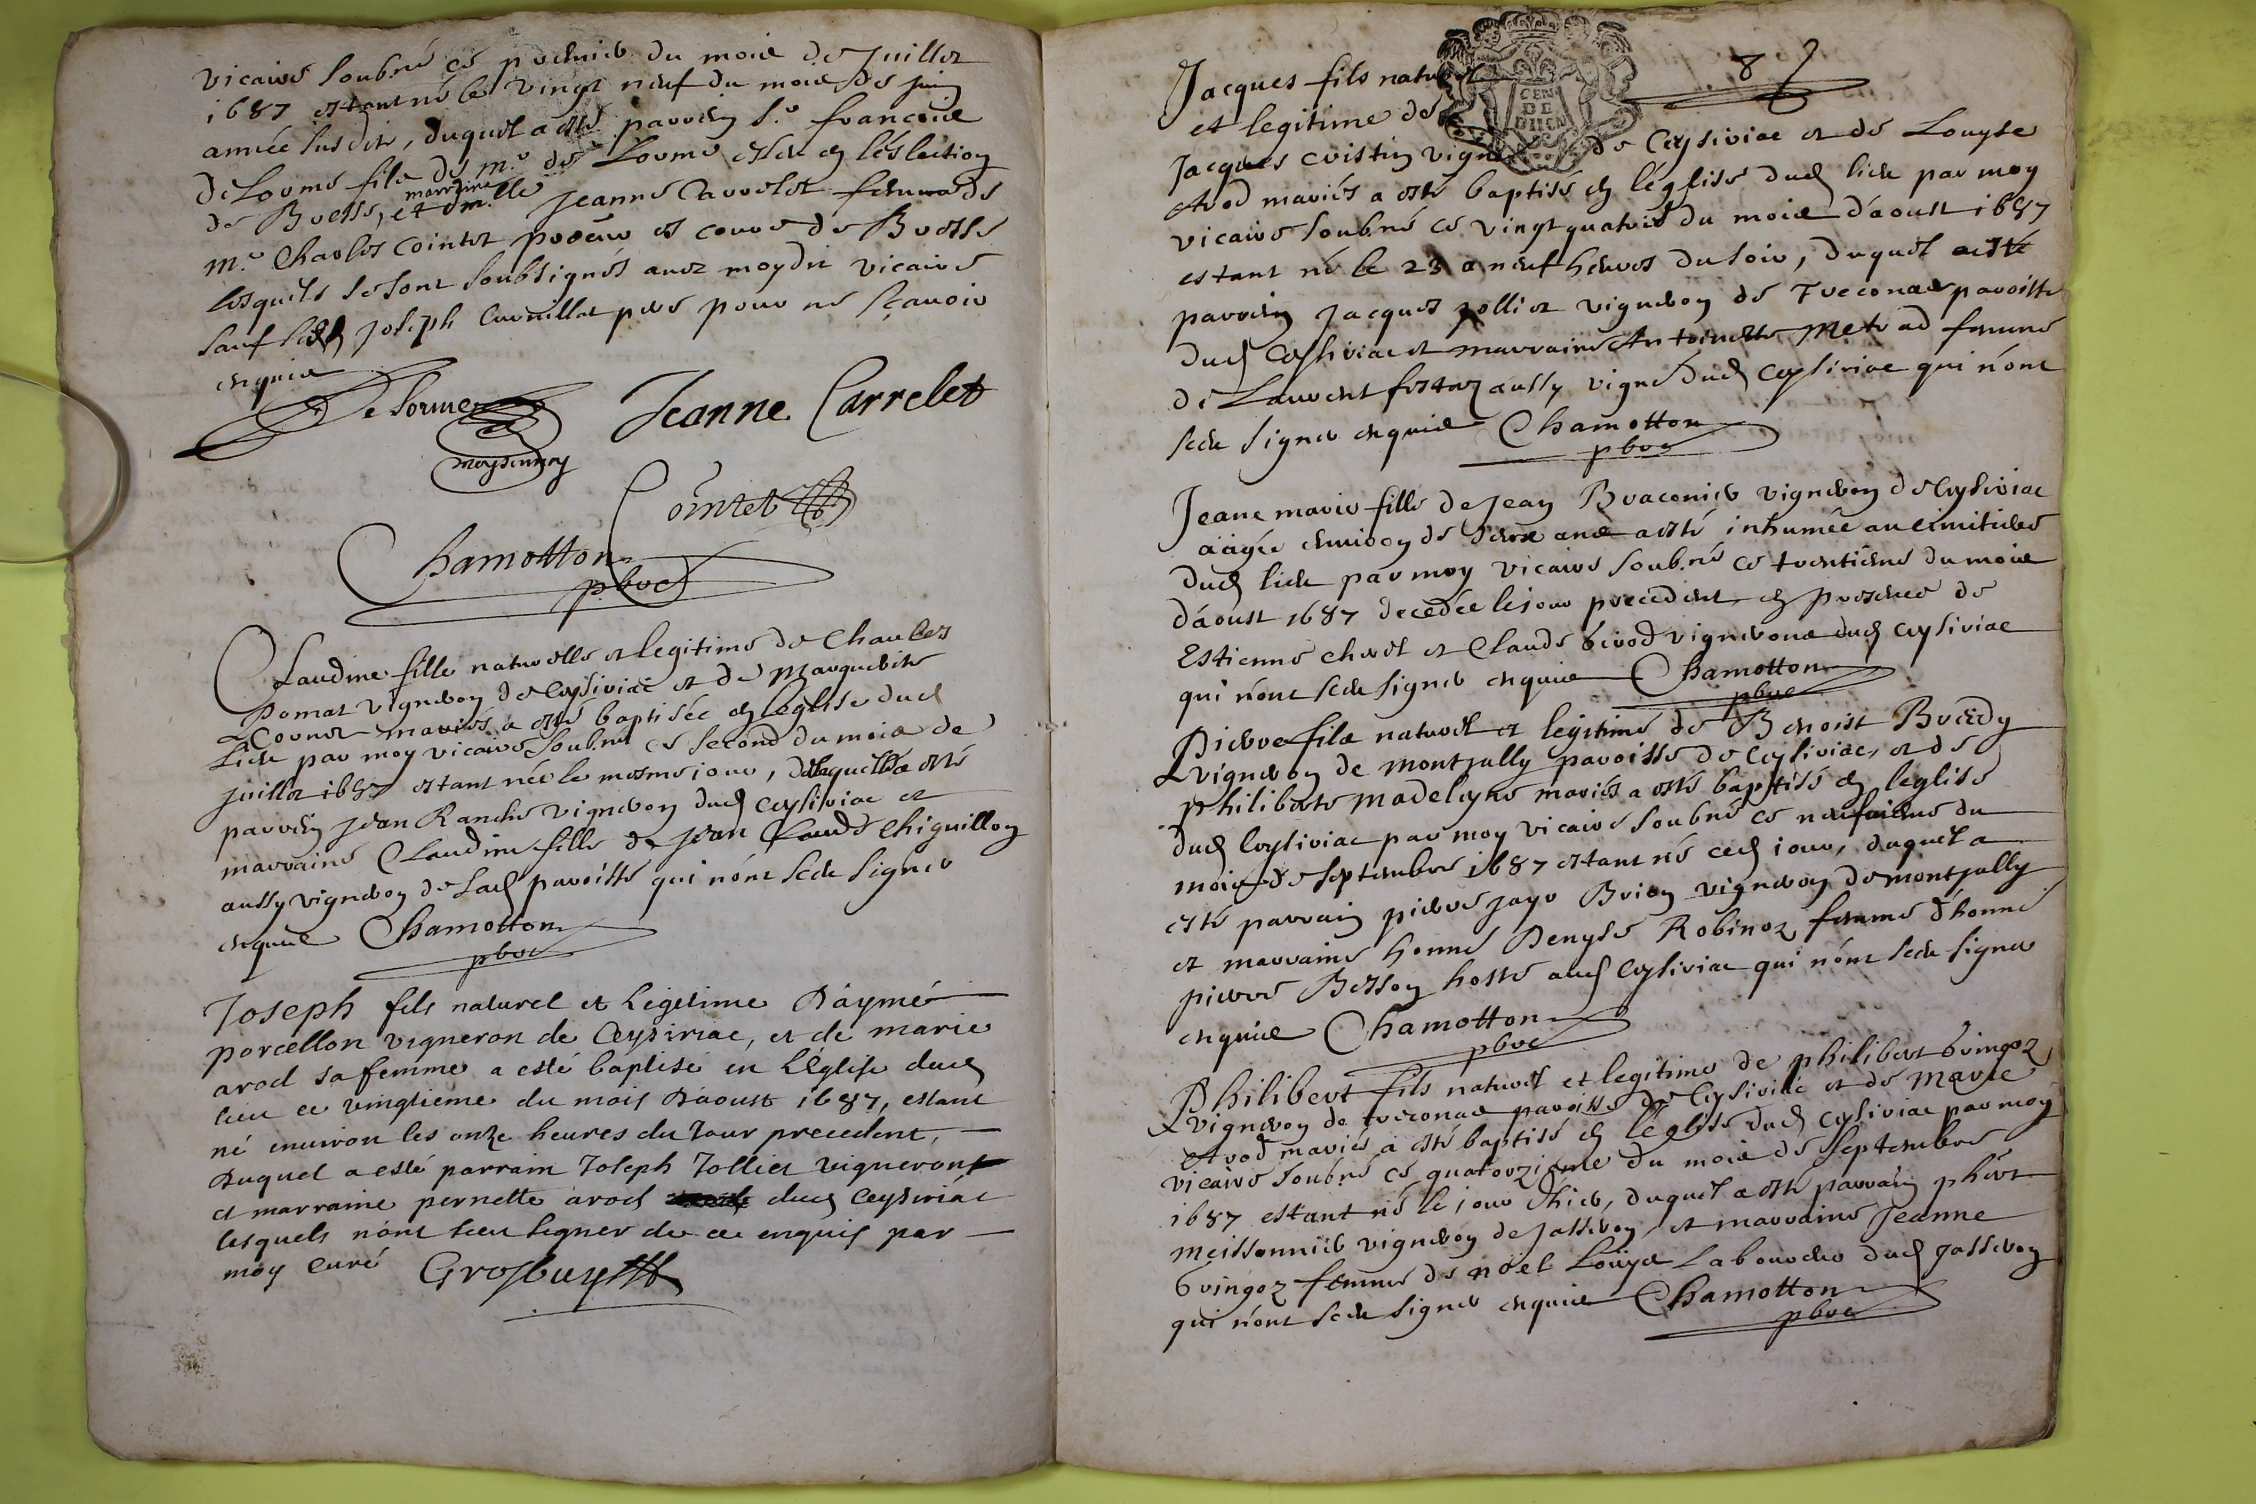 vicaire soubné ce premier du mois de Juillet
1687 estant né le vingt neuf du mois de juin
année susdite, duquel a esté parrein S.r francois
deLorme fils de m.e de Lorme esleu en léslection
de Bresse, et marraine dm.lle Jeanne Carrelet femme de
m.e Charles Cointet procur es cours de Bresse
lesquels se sont soubsignés avec moydit vicaire
sauf led Joseph Cornillat pere pour ne sçavoir
enquis
De Lorme
Jeanne Carrelet
Cointet
Chamotton
pbre
Claudine fille naturelle et legitime de Charles
Domat vigneron de Ceysiriac et de Marguerite
Cornet mariés a esté baptisée en léglise dud
Lieu par moy vicaire soubné ce second du mois de
juillet 1687 estant née le mesme jour, delaquelle a esté
parrein jean Ranche vigneron dud ceysiriac et
marraine Claudine fille de jean Claude Chiguillon
aussy vigneron de lad paroisse qui n'ont sceu signer
enquis Chamotton
pbre
Joseph fils naturel et Légitime D'aymé
porcellon vigneron de Ceysiriac, et de marie
arod sa femme a esté baptisé en L'Eglise dud
lieu ce vingtieme du mois D'aoust 1687, estant
né environ les onze heures du Jour precedent,
Duquel a esté parrain Joseph Jolliet vigneron
et marraine pernette arod dud Ceysiriac
lesquels n'ont sceu signer de ce enquis par
moy curé Grosbuys
8
CEN
DE
Jacques fils naturel
et legitime de
Jacques cristin vigne de Ceysiriac et de Louyse
Arod mariés a esté baptisé en léglise dud lieu par moy
vicaire soubné ce vingt quatre du mois d'aoust 1687
estant né le 23 a neuf heures du soir, duquel a esté
parrein Jacques jolliet vigneron de Treconas paroisse
dud Ceysiriac et marraine Antoinette Metrad femme
de Laurent aussy vigne dud ceysiriac qui n'ont
sceu signer enquis Chamotton
pbre
Jeane marie fille de Jean Braconier vigneron de Ceysiriac
aâgée environ de deux ans a esté inhumée au cimitiere
dud lieu par moy vicaire soub.né ce trentieme du mois
d'aoust 1687 decedée le jour precedent en presence de
Estienne chevet et Claude birod vignerons dud ceysiriac
qui n'ont sceu signer enquis Chamotton
pbre
Pierre fils naturel et legitime de Benoist Bredy
vigneron de montjully paroisse de Ceysiriac, et de
philiberte madeleyne mariés a esté baptisé en leglise
dud Ceysiriac par moy vicaire soubné ce neufieme du
mois de septembre 1687 estant né ced jour, duquel a
esté parrain pierre jayr Brion vigneron de montjully
et marraine honne Denyse Robinoz femme d'honne
pierre Besson hoste aud Ceysiriac qui n'ont sceu signer
enquis Chamotton
pbre
Philibert fils naturel et legitime de philibert bringoz
vigneron de treconas paroisse de Ceysiriac et de Marie
Arod mariés a esté baptisé en l'eglise dud ceysiriac par moy
vicaire soubné ce quatorzieme du mois de septembre
1687 estant né le jour d'hier, duquel a esté parrain phibert
meissonnier vigneron de Jasseron, et marraine Jeanne
bringoz femme de noel Louys laboureur dud Jasseron
qui n'ont sceu signer enquis Chamotton
pbre